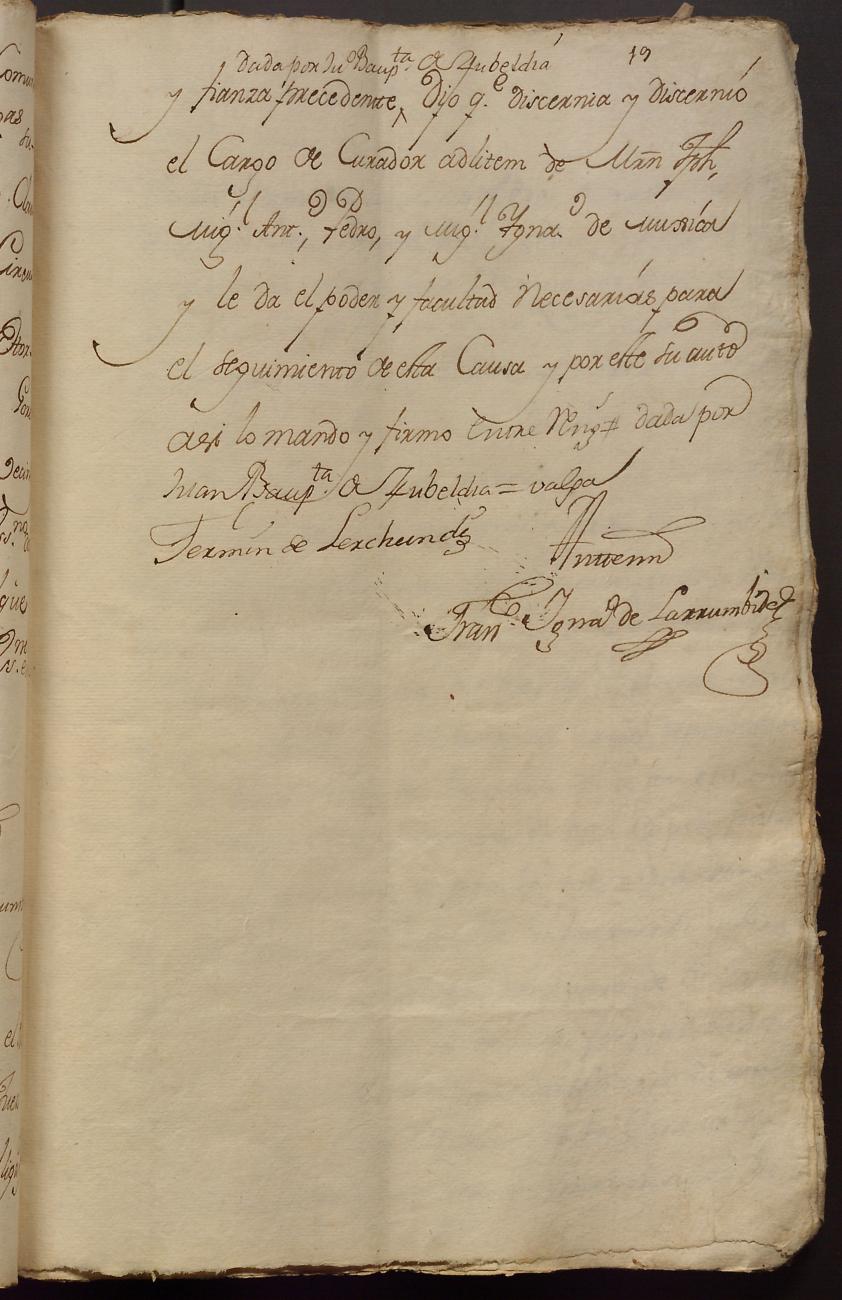 dada por Ju.º Baup.ta de Zubeldia 19
y fianza precedente, Dijo q.e discernia y discernió
el Cargo de Curador adlitem de Mrn Jph,
Mig.l Ant.º, Pedro, y Mig.l Ygna.º de Mussica
y le da el poder y facultad Necesarias para
el seguimiento de esta Causa y por este su auto
asi lo mando y firmo Entre Reng.s dada por
Juan Baup.ta de Zubeldia = valga
Fermin de Lerchundi
Antemi
Fran.co Igna.º de Larrumbide